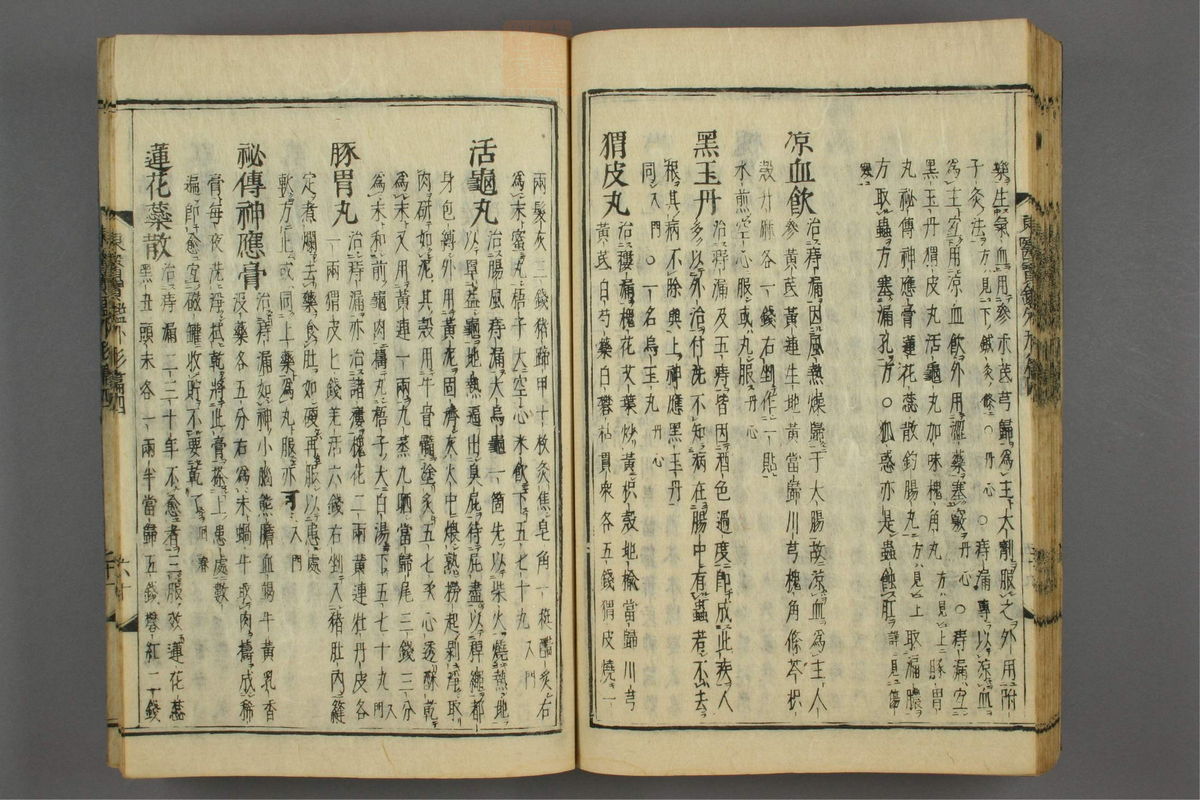 藥生氣血用參朮芪芎歸爲主大劑服之外用附
子灸法方見下鍼灸條○丹心○痔漏專以涼血
爲主宜用涼血飮外用澁藥塞竅丹心○痔漏宜
黑玉丹猬皮丸活龜丸加味槐角丸方見上豚胃
丸祕傳神應膏蓮花蘂散釣腸丸方見上取漏膿
方取蟲方塞漏孔方○狐惑亦是蟲蝕肛詳見傷
寒
涼血飮治痔漏因風熱燥歸于大腸故涼血爲主人
參黃芪黃連生地黃當歸川芎槐角條芩枳
殼升麻各一錢右剉作一貼
水煎空心服或丸服丹心
黑玉丹治痔漏及五痔皆因酒色過度卽成此疾人
多以外治付洗不知病在腸中有蟲若不去
根其病不除與上神應黑玉丹
同入門○一名烏玉丸丹心
猬皮丸治瘻漏槐花艾葉炒黃枳殼地楡當歸川芎
黃芪白芍藥白礬枯貫衆各五錢猬皮燒一
兩髮灰三錢猪蹄甲十枚灸焦皂角一梃醋灸右
爲末蜜丸梧子大空心米飮下五七十丸入門
活龜丸治腸風痔漏大烏龜一箇先以柴火燒熱地
以罩盖龜地熱逼出臭屁待屁盡以稈繩都
身色縛外用黃泥固濟灰火中煨熟撈起剝淨取
肉硏如泥其殼用牛骨髓塗灸五七次心透酥乾
爲末又用黃連一兩九蒸九晒當歸尾三錢三分
爲末和前龜肉擣丸梧子大白湯下五七十丸入門
豚胃丸治痔漏亦治諸瘻槐花二兩黃連牡丹皮各
一兩猬皮七錢羌活六錢右剉入猪肚內縫
定煮爛去藥食肚如硬再服以患處
軟方止或同上藥爲丸服亦可入門
祕傳神應膏治痔漏如神小腦熊膽血竭牛黃乳香
沒藥各五分右爲末蝸牛取肉擣成稀
膏每夜洗淨拭乾將此膏搽上患處數
遍卽愈宜磁罐收貯不要乾了回春
蓮花蘂散治痔漏二三十年不愈者三服效蓮花蘂
黑丑頭末各一兩半當歸五錢礬紅二錢